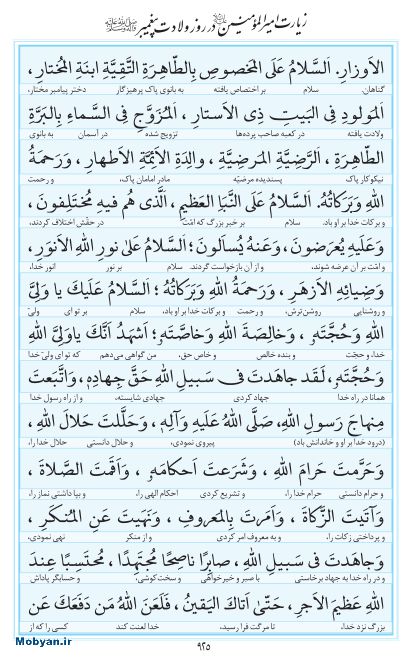 زیارت امیرالمؤمنین علیه السلام در روز ولادت پیغمبر صلی الله علیه وآله
الاَوزارِ. اَلسَّلامُ عَلَى المَخصوصِ بِالطّاهِرَةِ التَّقِيَّةِ ابنَةِ المُختارِ،
گناهان. سلام بر اختصاص یافته به بانوی پاک پرهیزگار دختر پیامبر مختار،
المَولودِ فِى البَيتِ ذِى الاَستارِ، المُزَوَّجِ فِى السَّماءِ بِالبَرَّةِ
ولادت یافته در کعبه صاحب پرده‌ها تزویج شده در آسمان به بانوی
الطّاهِرَةِ، الرَّضِيَّةِ المَرضِيَّةِ، والِدَةِ الاَئِمَّةِ الاَطهارِ، وَرَحمَةُ
نیکوکار پاک پسندیده مرضیّه مادر امامان پاک، و رحمت
اللهِ وَبَرَكاتُهُ. اَلسَّلامُ عَلَى النَّبَاِ العَظيمِ، اَلَّذى هُم فيهِ مُختَلِفونَ،
و برکات خدا بر او باد. سلام بر خبر بزرگ که امّت در حقّش اختلاف کردند،
وَعَلَيهِ يُعرَضونَ، وَعَنهُ يُسأَلونَ؛ اَلسَّلامُ عَلى نورِ اللهِ الاَنوَرِ،
و امّت بر آن عرضه شوند، و از آن بازخواست گردند. سلام بر نور انور خدا،
وَضِيائِهِ الاَزهَرِ، وَرَحمَةُ اللهِ وَبَرَكاتُهُ؛ اَلسَّلامُ عَلَيكَ يا وَلِىَّ
و روشنایی روشن‌ترش، و رحمت و برکات خدا بر او باد، سلام بر تو ای ولیّ
اللهِ وَحُجَّتَهُ، وَخالِصَةَ اللهِ وَخاصَّتَهُ؛ اَشهَدُ اَنَّكَ يا وَلِىَّ اللهِ
خدا، و حجّت و بنده خالص و خاص حق، من گواهی می‌دهم که تو ای ولیّ خدا
وَحُجَّتَهُ، لَقَد جاهَدتَ فى سَبيلِ اللهِ حَقَّ جِهادِهِ، وَاتَّبَعتَ
همانا در راه خدا جهاد کردی جهادی شایسته، و از راه رسول خدا
مِنهاجَ رَسولِ اللهِ، صَلَّى اللهُ عَلَيهِ وَآلِهِ، وَحَلَّلتَ حَلالَ اللهِ،
(درود خدا بر او و خاندانش باد) پیروی نمودی، و حلال دانستی حلال خدا را،
وَحَرَّمتَ حَرامَ اللهِ، وَشَرَعتَ اَحكامَهُ، وَاَقَمتَ الصَّلاةَ،
و حرام دانستی حرام خدا را، و تشریع کردی احکام الهی را، و بپا داشتی نماز را،
وَآتَيتَ الزَّكاةَ، وَاَمَرتَ بِالمَعروفِ، وَنَهَيتَ عَنِ المُنكَرِ،
و پرداختی زکات را، و به معروف امر کردی و از منکر نهی نمودی،
وَجاهَدتَ فى سَبيلِ اللهِ، صابِرًا ناصِحًا مُجتَهِدًا، مُحتَسِبًا عِندَ
و در راه خدا به جهاد برخاستی با صبر و خیرخواهی و سخت‌کوشی، و حسابگر پاداش
اللهِ عَظيمَ الاَجرِ، حَتّى اَتاكَ اليَقينُ، فَلَعَنَ اللهُ مَن دَفَعَكَ عَن
بزرگ نزد خدا، تا مرگت فرا رسید، خدا لعنت کند کسی را که از
۹۲۵
Mobyan.ir